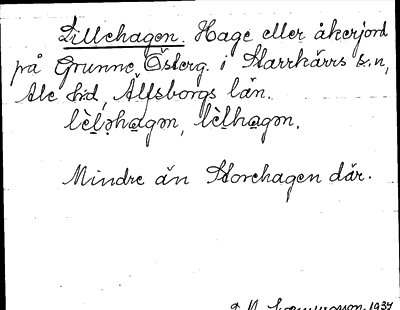 Lillehagen. Hage eller åkerjord
på Grunne Österg. i Starrkärrs s:n,
Ale h:d, Älfsborgs län.
lèləhagən, lèlhagən.
Mindre än Storehagen där.
1937